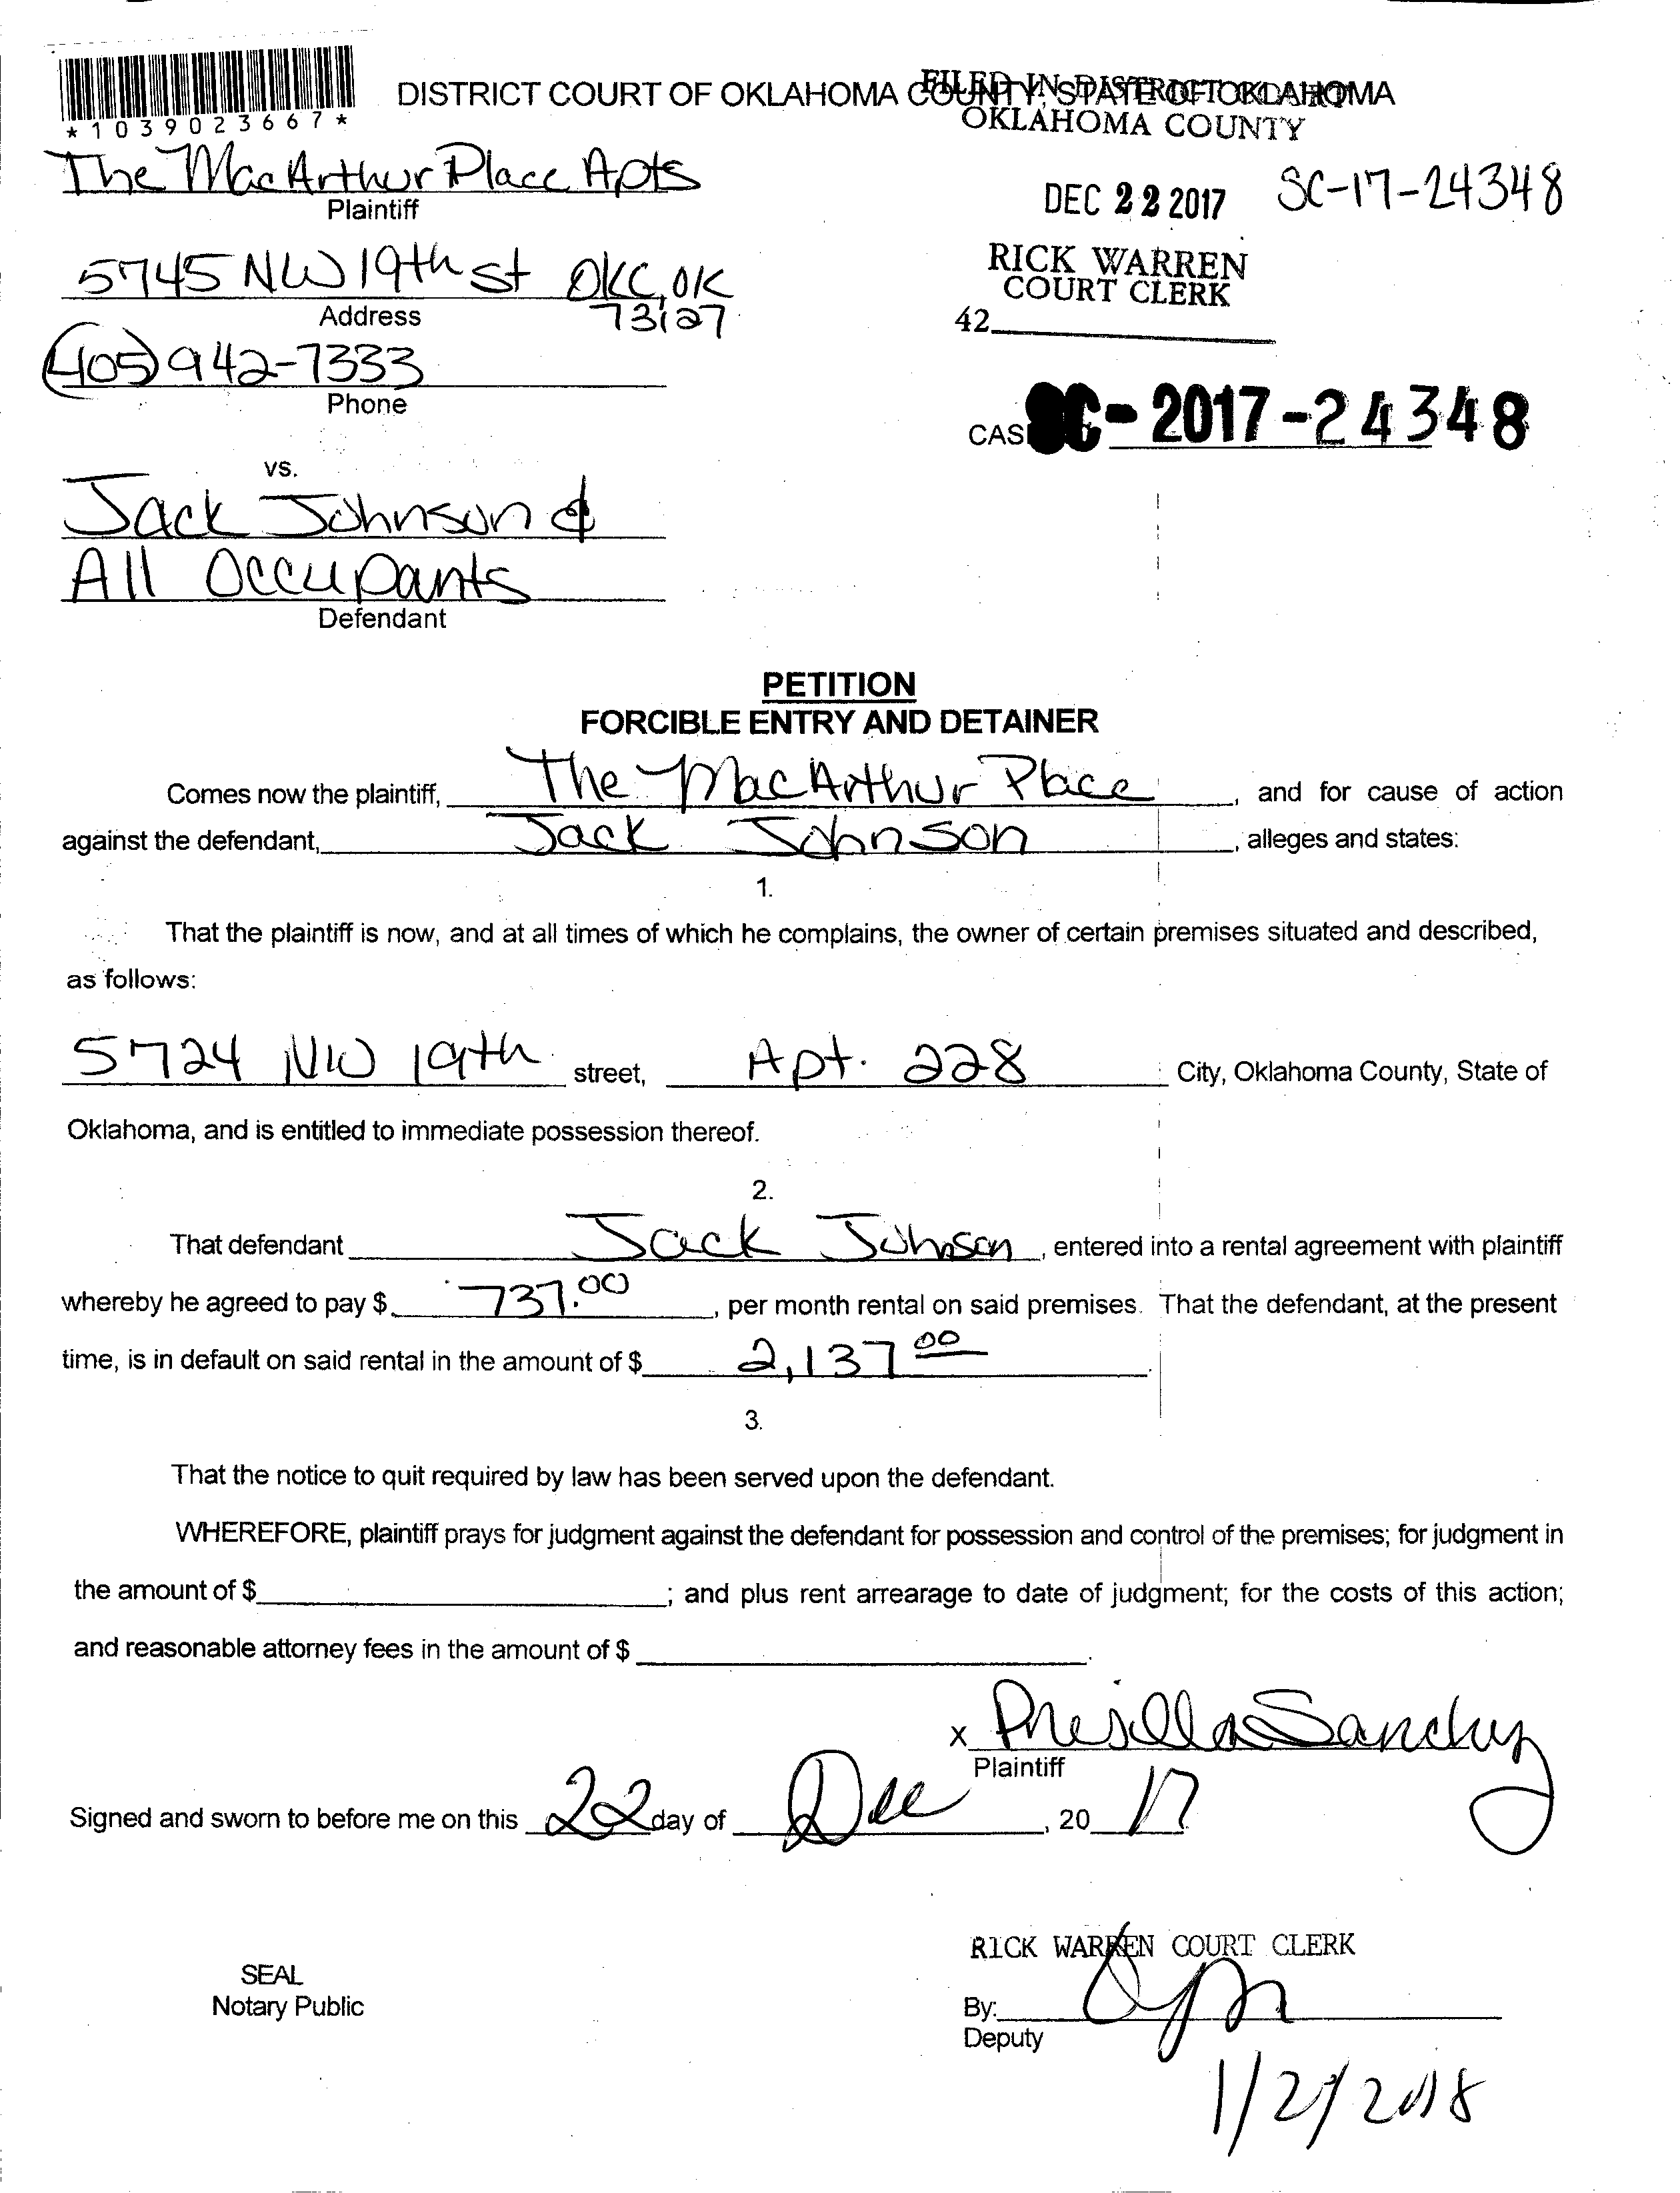 *1039023667*
DISTRICT COURT OF OKLAHOMA COUNTY, STATE OF OKLAHOMA
FILED IN DISTRICT COURT
OKLAHOMA COUNTY
The MacArthur Place Apts
Plaintiff
DEC 22 2017
SC-17-24348
5745 NW 19th st OKC, OK
73127
Address
RICK WARREN
COURT CLERK
42
(405) 942-7333
Phone
CAS SC-2017-24348
vs.
Jack Johnson &
All Occupants
Defendant
PETITION
FORCIBLE ENTRY AND DETAINER
Comes now the plaintiff, The MacArthur Place, and for cause of action
against the defendant, Jack Johnson, alleges and states:
1.
That the plaintiff is now, and at all times of which he complains, the owner of certain premises situated and described,
as follows:
5724 NW 19th street, Apt. 228 City, Oklahoma County, State of
Oklahoma, and is entitled to immediate possession thereof.
2.
That defendant Jack Johnson, entered into a rental agreement with plaintiff
whereby he agreed to pay $ 737.00, per month rental on said premises. That the defendant, at the present
time, is in default on said rental in the amount of $ 2,137 00.
3.
That the notice to quit required by law has been served upon the defendant.
WHEREFORE, plaintiff prays for judgment against the defendant for possession and control of the premises; for judgment in
the amount of $ ; and plus rent arrearage to date of judgment; for the costs of this action;
and reasonable attorney fees in the amount of $ .
x Prisilla Sanchez
Plaintiff
Signed and sworn to before me on this 22 day of Dec, 20 17
RICK WARREN COURT CLERK
SEAL
Notary Public
By:
Deputy
1/2/2018